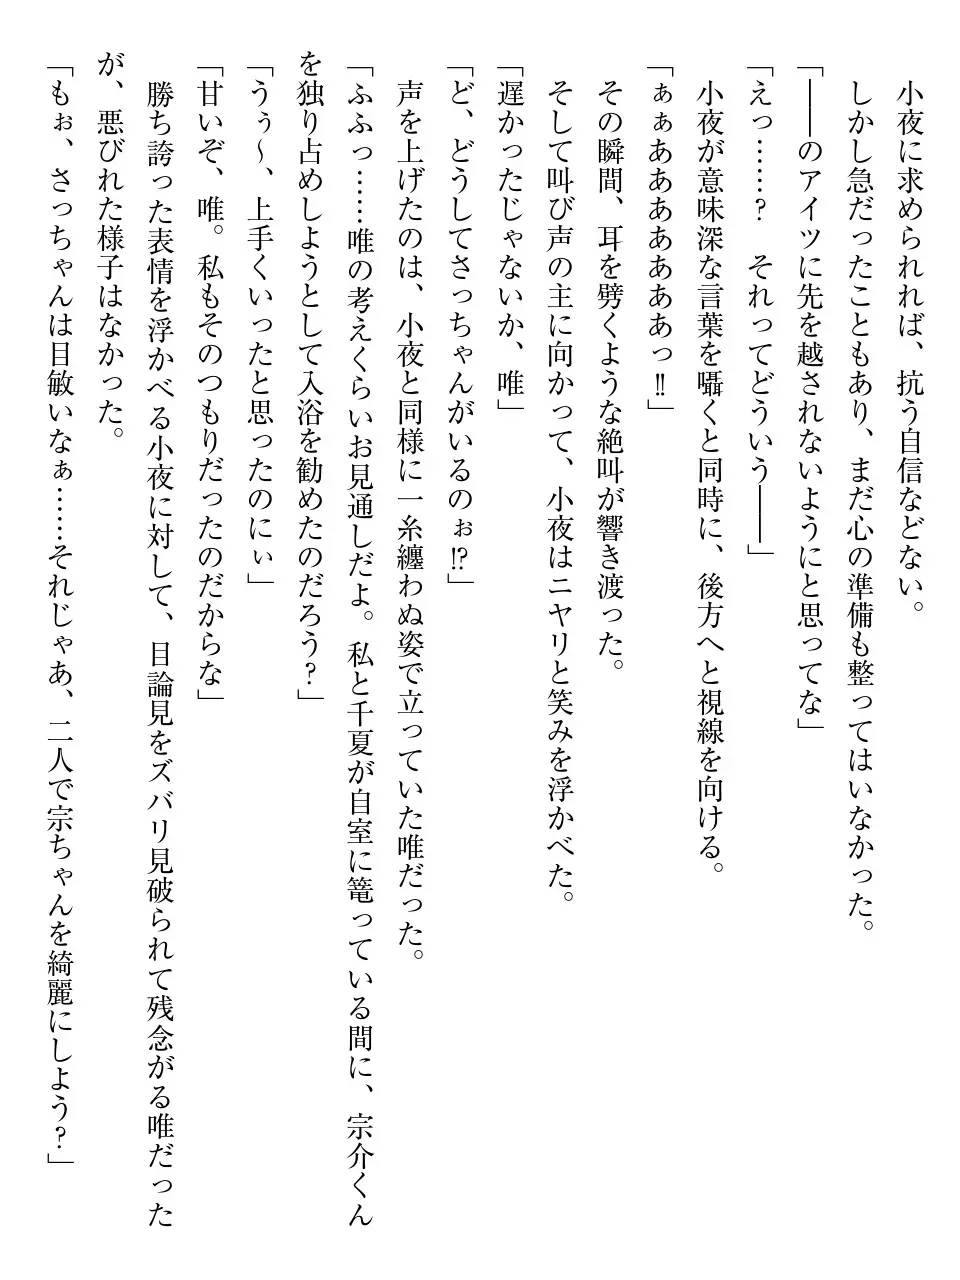 小夜に求められれば、抗う自信などない。
しかし急だったこともあり、まだ心の準備も整ってはいなかった。
「――のアイツに先を越されないようにと思ってな」
「えっ……？　それってどういう――」
小夜が意味深な言葉を囁くと同時に、後方へと視線を向ける。
「ぁぁああああああっ‼」
その瞬間、耳を劈くような絶叫が響き渡った。
そして叫び声の主に向かって、小夜はニヤリと笑みを浮かべた。
「遅かったじゃないか、唯」
「ど、どうしてさっちゃんがいるのぉ⁉」
声を上げたのは、小夜と同様に一糸纏わぬ姿で立っていた唯だった。
「ふふっ……唯の考えくらいお見通しだよ。私と千夏が自室に篭っている間に、宗介くん
を独り占めしようとして入浴を勧めたのだろう？」
「うぅ～、上手くいったと思ったのにぃ」
「甘いぞ、唯。私もそのつもりだったのだからな」
勝ち誇った表情を浮かべる小夜に対して、目論見をズバリ見破られて残念がる唯だった
が、悪びれた様子はなかった。
「もぉ、さっちゃんは目敏いなぁ……それじゃあ、二人で宗ちゃんを綺麗にしよう？」